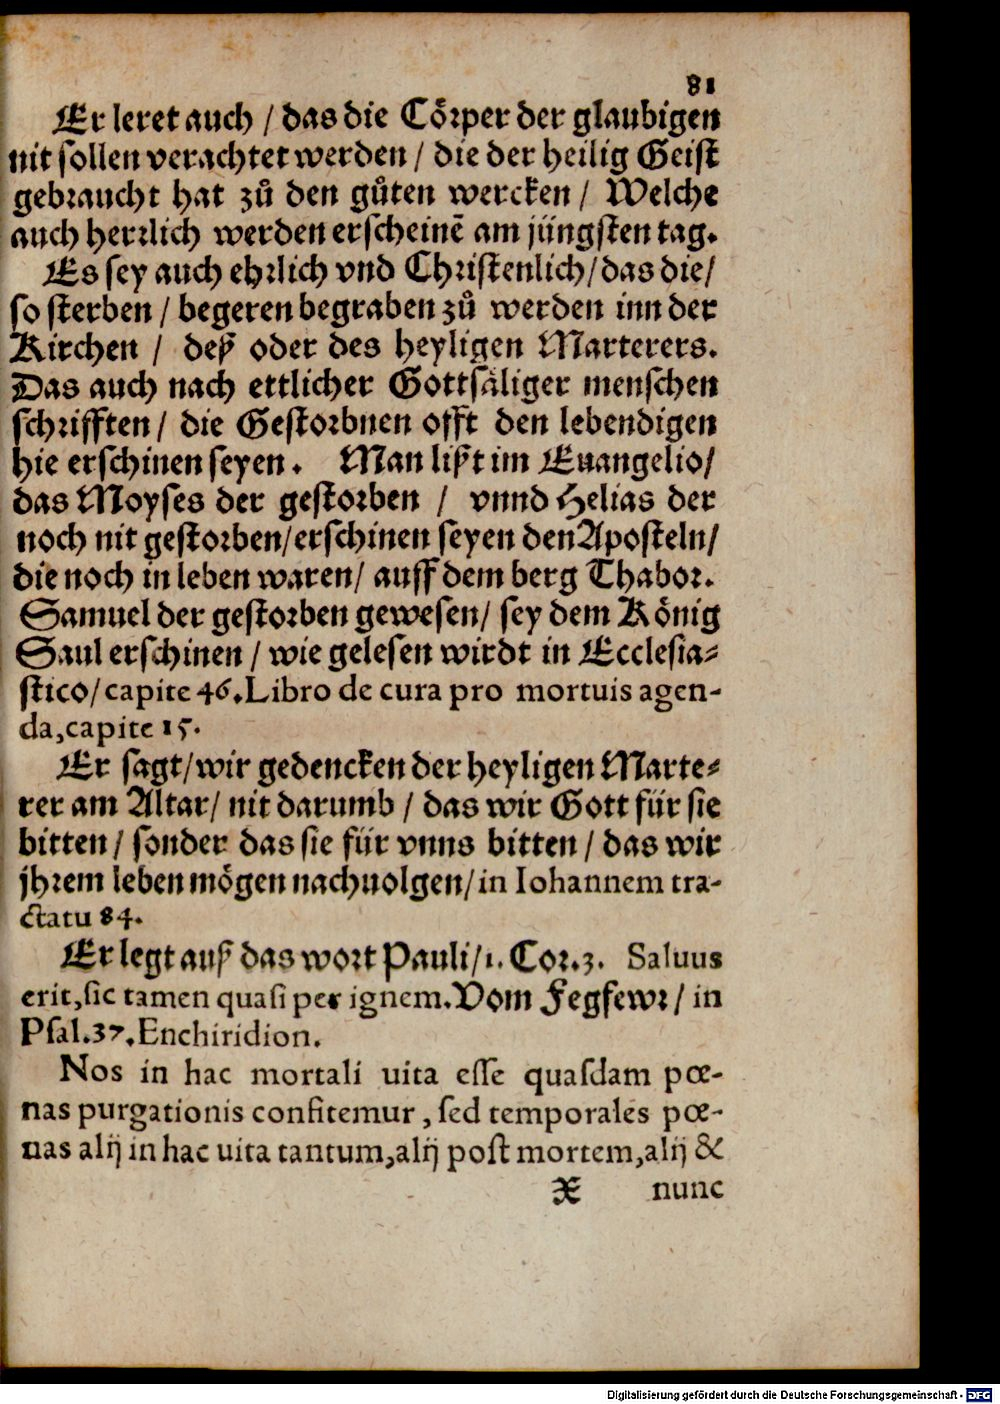 81
Er leret auch / das die Cörper der glaubigen
nit sollen verachtet werden / die der heilig Geist
gebraucht hat zů den gůten wercken / Welche
auch herrlich werden erscheinẽ am jüngsten tag.
Es sey auch ehrlich vnd Christenlich / das die /
so sterben / begeren begraben zů werden inn der
Kirchen / deß oder des heyligen Marterers.
Das auch nach ettlicher Gottsäliger menschen
schrifften / die Gestorbnen offt den lebendigen
hie erschinen seyen. Man lißt im Euangelio /
das Moyses der gestorben / vnnd Helias der
noch nit gestorben / erschinen seyen den Aposteln /
die noch in leben waren / auff dem berg Thabor.
Samuel der gestorben gewesen / sey dem König
Saul erschinen / wie gelesen wirdt in Ecclesia-
stico / capite 46. Libro de cura pro mortuis agen-
da, capite 15.
Er sagt / wir gedencken der heyligen Marte-
rer am Altar / nit darumb / das wir Gott für sie
bitten / sonder das sie für vnns bitten / das wir
jhrem leben mögen nachuolgen / in Iohannem tra-
ctatu 84.
Er legt auß das wort Pauli / 1. Cor. 3. Saluus
erit, sic tamen quasi per ignem. Vom Fegfewr / in
Psal. 37. Enchiridion.
Nos in hac mortali uita esse quasdam pœ-
nas purgationis confitemur, sed temporales pœ-
nas alij in hac uita tantum, alij post mortem, alij &
X nunc
Digitalisierung gefördert durch die Deutsche Forschungsgemeinschaft - DFG